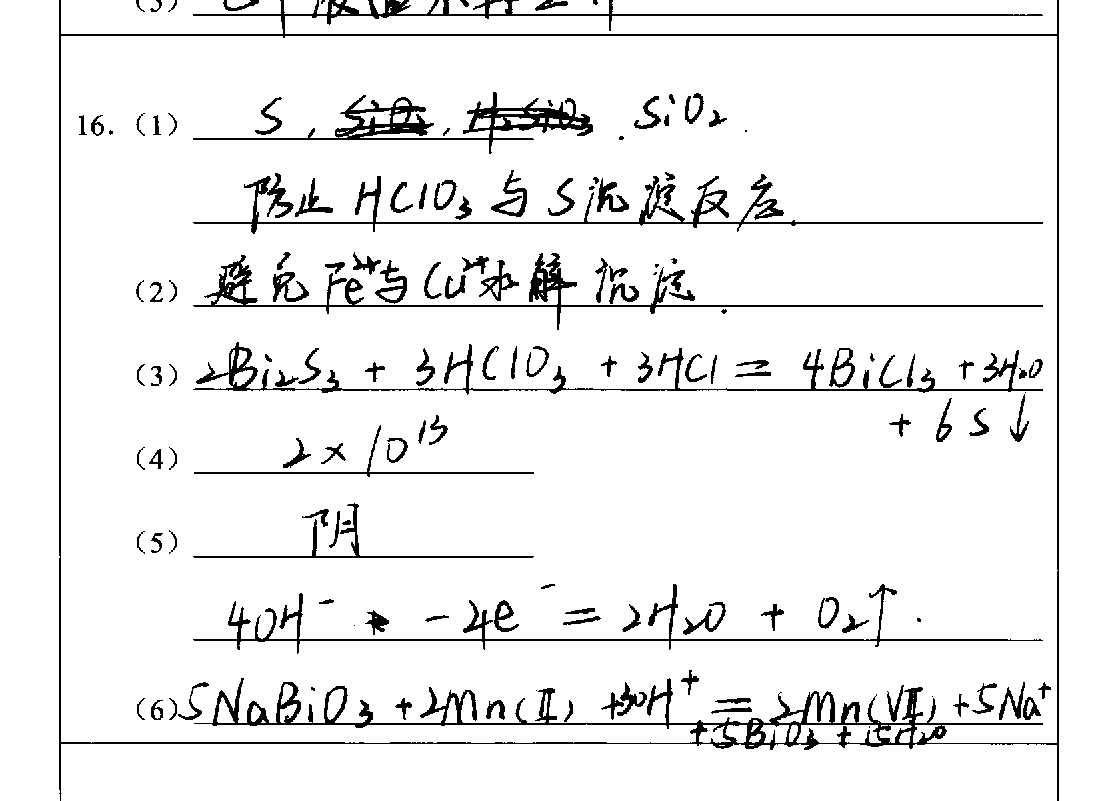 16.（1） S , SiO₂.
防止 HClO₃ 与 S 沉淀反应.
（2） 避免 Fe²⁺与 Cu²⁺水解 沉淀.
（3） 2Bi₂S₃ + 3HClO₃ + 3HCl = 4BiCl₃ + 3H₂O
+ 6S↓
（4） 2×10¹³
（5） 阴
4OH⁻ -4e⁻ = 2H₂O + O₂↑.
（6）5NaBiO₃ +2Mn(Ⅱ) +30H⁺ = 2Mn(Ⅶ) +5Na⁺
+5BiO₃ + 15H₂O